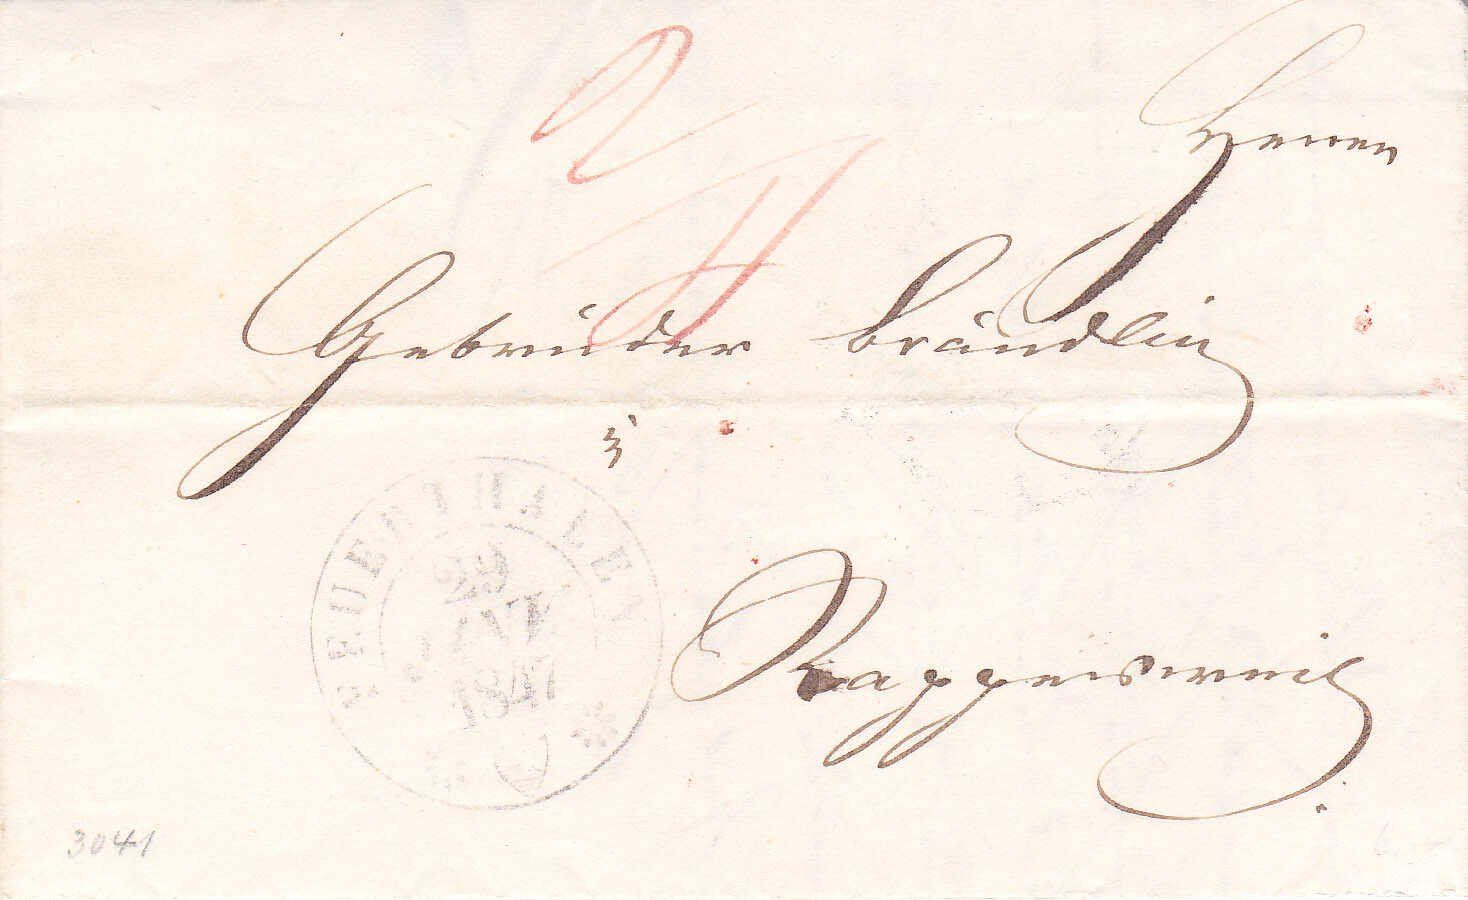 Herren
Gebrüder Brändlin
in
Rapperswil
FEUERTHALEN
29
JUNI
1847
3041